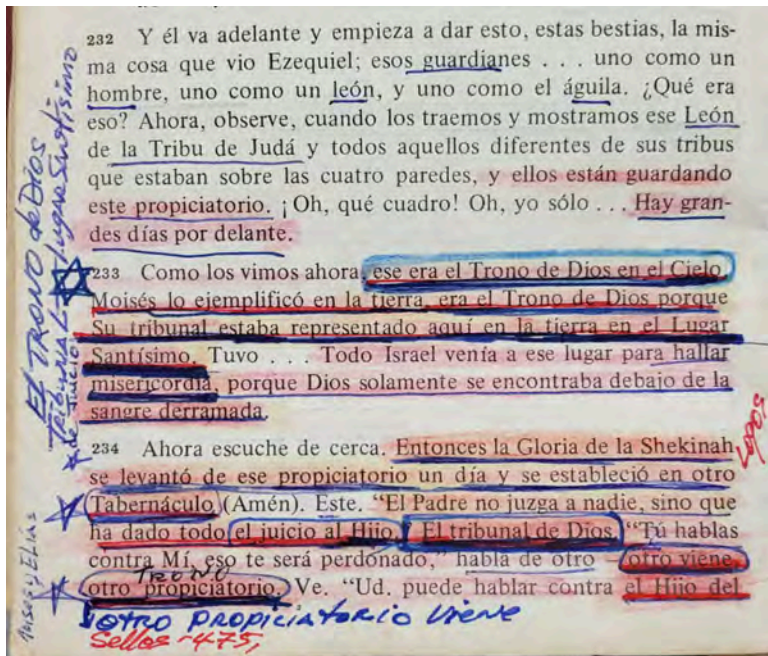 232 Y él va adelante y empieza a dar esto, estas bestias, la mis-
ma cosa que vio Ezequiel; esos guardianes . . . uno como un
hombre, uno como un león, y uno como el águila. ¿Qué era
eso? Ahora, observe, cuando los traemos y mostramos ese León
de la Tribu de Judá y todos aquellos diferentes de sus tribus
que estaban sobre las cuatro paredes, y ellos están guardando
este propiciatorio. ¡Oh, qué cuadro! Oh, yo sólo . . . Hay gran-
des días por delante.
233 Como los vimos ahora, ese era el Trono de Dios en el Cielo
Moisés lo ejemplificó en la tierra, era el Trono de Dios porque
Su tribunal estaba representado aquí en la tierra en el Lugar
Santísimo. Tuvo . . . Todo Israel venía a ese lugar para hallar
misericordia, porque Dios solamente se encontraba debajo de la
sangre derramada.
234 Ahora escuche de cerca. Entonces la Gloria de la Shekinah
se levantó de ese propiciatorio un día y se estableció en otro
Tabernáculo (Amén). Este. “El Padre no juzga a nadie, sino que
ha dado todo el juicio al Hijo. El tribunal de Dios. “Tú hablas
contra Mí, eso te será perdonado,” habla de otro otro viene,
TRONO
otro propiciatorio. Ve. “Ud. puede hablar contra el Hijo del
OTRO PROPICIATORIO Viene
Sellos - 475,
El TRONO de Dios
TRIBUNAL - Lugar Santísimo
de Juicio
Moises y Elías